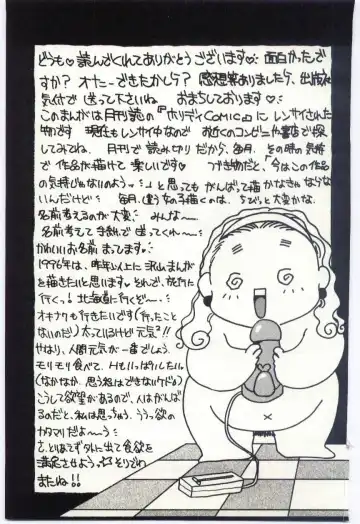 どうも♡読んでくれてありがとうございます♡ 面白かったで
すか? オナニーできたかしら? 感想等ありましたら、出版社
気付で送って下さいね おまちしております♡
このまんがは月刊読の『ホリディCOMIC』にレンサイされた
物です 現在もレンサイ中なので お近くのコンビニや書店で探
してみてね。月刊で読み切りだから、毎月、その時の気持
で作品が描けて楽しいです♡ つづき物だと、「今はこの作品
の気持じゃないのよう…」と思ってもがんばって描かなきゃならな
いんだけど 毎月、違う女の子描くのは、ちびっと大変かな。
名前考えるのが大変 みんな〜
名前考えて手紙で送ってくれ〜
かわいいお名前まってます。
1996年は、昨年以上に沢山まんが
を描きたいと思います♡ それで、旅行に
行くっ! 北海道に行くど〜。
オキナワも行きたいです(行ったこと
ないのだ) 太っているけど元気?!!
やはり、人間元気が一番でしょう。
モリモリ食べて、Hもいっぱいしたい
(なかなか思う程はできないケドね)
こうして欲望があるので、人はがんば
るのだと、私は思っちゃう。ううっ欲の
カタマリだよ〜う
さ、とりあえず外に出て食欲を
満足させよう。 それでわ
またね!!